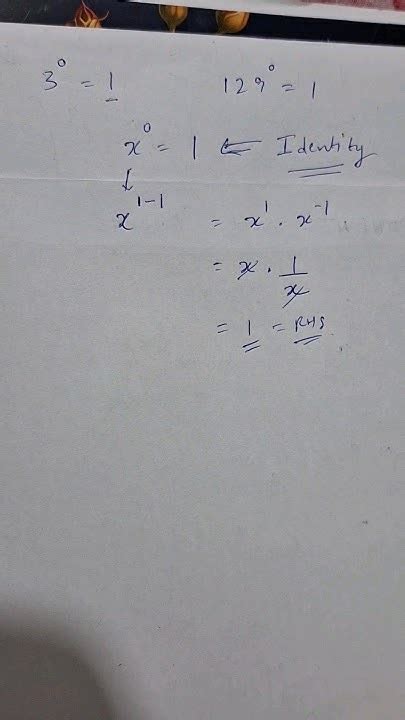 3⁰ = 1 129⁰ = 1
x⁰ = 1 ⇐ Identity
↓
x¹⁻¹ = x¹ · x⁻¹
= x · 1/x
= 1 = RHS